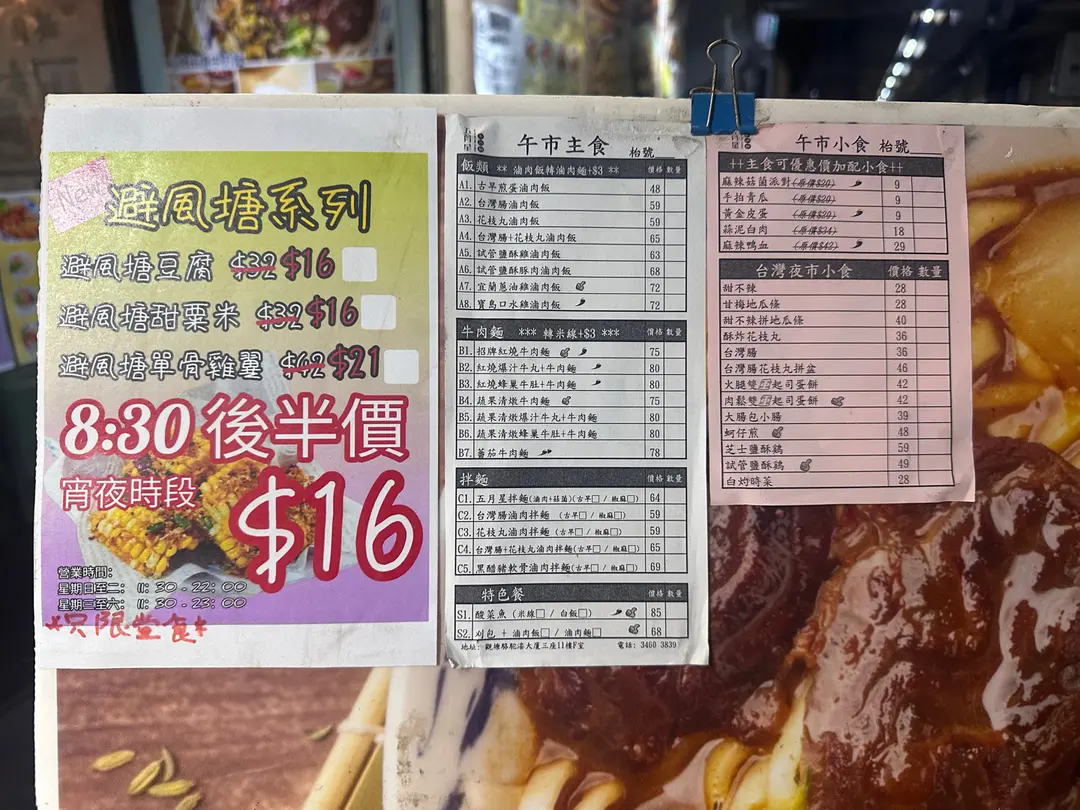 New
避風塘系列
避風塘豆腐 $32 $16
避風塘甜粟米 $32 $16
避風塘單骨雞翼 $42 $21
8:30後半價
宵夜時段 $16
營業時間:
星期日至二: 11:30-22:00
星期三至六: 11:30-23:00
*只限堂食*
午市主食 枱號
飯類 ** 滷肉飯轉滷肉麵+$3 價格 數量
A1. 古早煎蛋滷肉飯 48
A2. 台灣腸滷肉飯 59
A3. 花枝丸滷肉飯 59
A4. 台灣腸+花枝丸滷肉飯 65
A5. 試管鹽酥雞滷肉飯 63
A6. 試管鹽酥豚肉滷肉飯 68
A7. 宜蘭蔥油雞滷肉飯 72
A8. 寶島口水雞滷肉飯 72
牛肉麵 *** 轉米線+$3 *** 價格 數量
B1. 招牌紅燒牛肉麵 75
B2. 紅燒爆汁牛丸+牛肉麵 80
B3. 紅燒蜂巢牛肚+牛肉麵 80
B4. 蔬果清燉牛肉麵 75
B5. 蔬果清燉爆汁牛丸+牛肉麵 80
B6. 蔬果清燉蜂巢牛肚+牛肉麵 80
B7. 蕃茄牛肉麵 78
拌麵 價格 數量
C1. 五月星拌麵(滷肉+菇菌)(古早□ / 椒麻□) 64
C2. 台灣腸滷肉拌麵 (古早□ / 椒麻□) 59
C3. 花枝丸滷肉拌麵 (古早□ / 椒麻□) 59
C4. 台灣腸+花枝丸滷肉拌麵(古早□ / 椒麻□) 65
C5. 黑醋豬軟骨滷肉拌麵(古早□ / 椒麻□) 69
特色餐 價格 數量
S1. 酸菜魚 (米線□ / 白飯□) 85
S2. 刈包 + 滷肉飯□ / 滷肉麵□ 68
地址: 觀塘駱駝漆大廈三座11樓F室 電話: 3460 3839
午市小食 枱號
++主食可優惠價加配小食++
麻辣菇菌派對(原價$20) 9
手拍青瓜 (原價$20) 9
黃金皮蛋 (原價$20) 9
蒜泥白肉 (原價$34) 18
麻辣鴨血 (原價$42) 29
台灣夜市小食 價格 數量
甜不辣 28
甘梅地瓜條 28
甜不辣拼地瓜條 40
酥炸花枝丸 36
台灣腸 36
台灣腸花枝丸拼盆 46
火腿雙起司蛋餅 42
肉鬆雙起司蛋餅 42
大腸包小腸 39
蚵仔煎 48
芝士鹽酥鷄 59
試管鹽酥鷄 49
白灼時菜 28